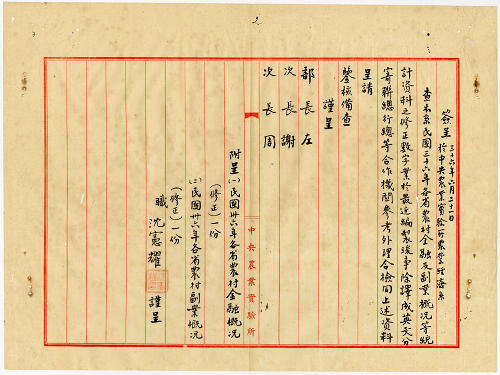 簽呈 三十六年六月二十一日
於中央農業實驗所農業經濟系
查本系民國三十六年各省農村金融及副業概況等統
計資料之修正數字業於最近編製竣事除譯成英文分
寄聯總行總等合作機關參考外理合檢同上述資料
呈請
鑒核備查
謹呈
部長左
次長謝
次長周
附呈(一)民國卅六年各省農村金融概況
(修正)一份
(二)民國卅六年各省農村副業概況
(修正)一份
職 沈憲耀 謹呈
中央農業實驗所
2